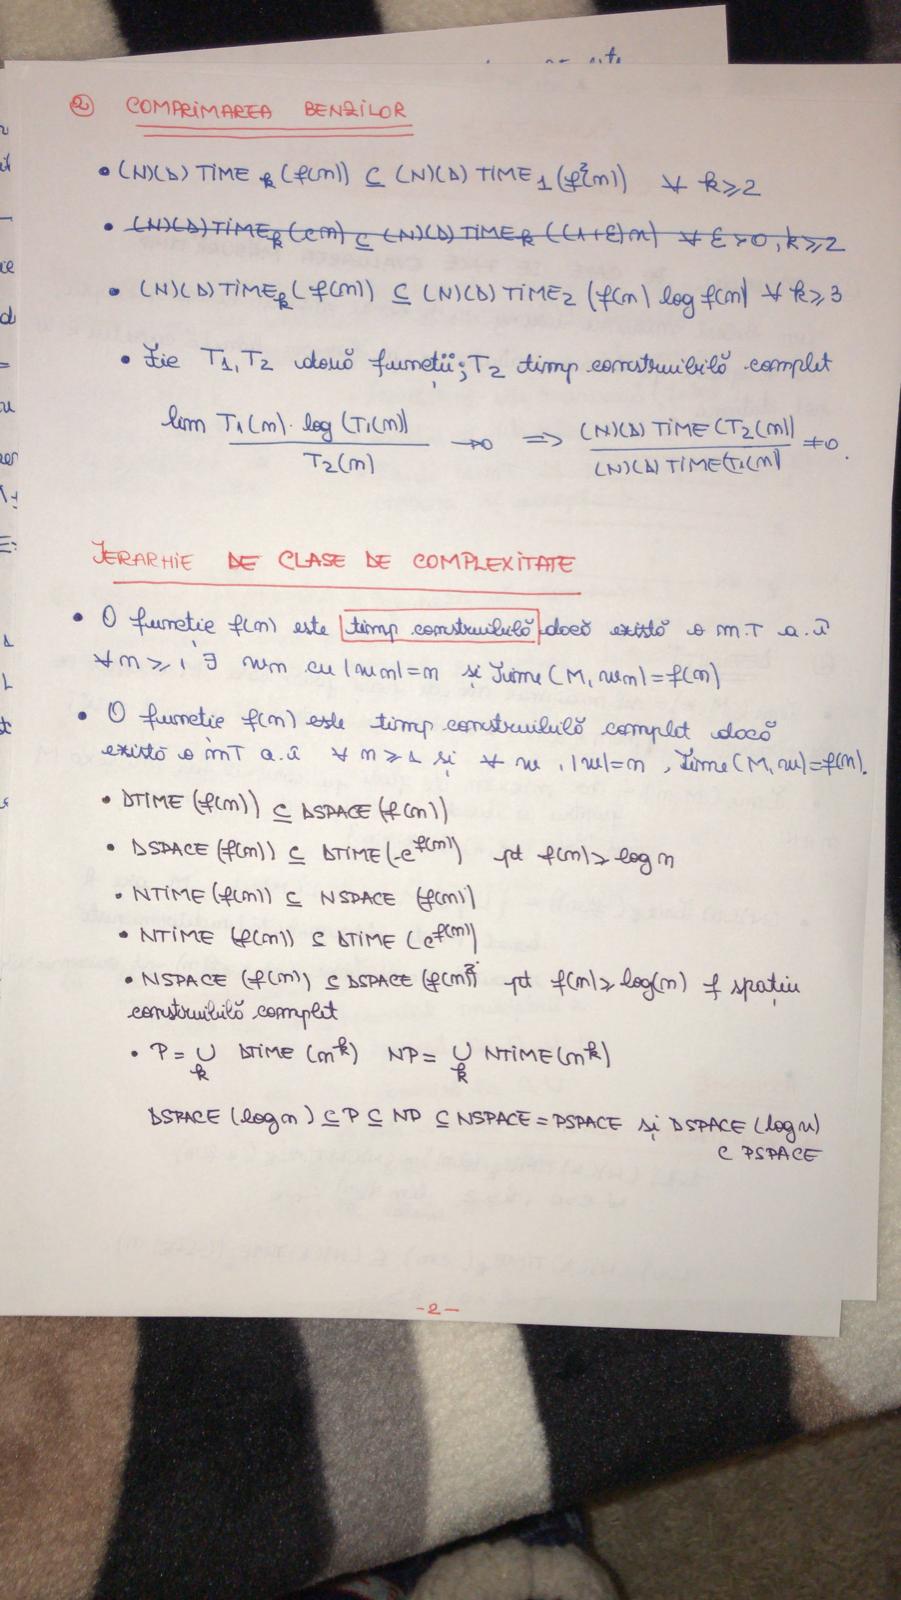 ② COMPRIMAREA BENZILOR
• (N)(D) TIME k (f(n)) ⊆ (N)(D) TIME 1 (f²(n)) ∀ k ≥ 2
• (N)(D) TIME k (cn) ⊆ (N)(D) TIME k ((1+ε)n) ∀ ε > 0, k ≥ 2
• (N)(D) TIME k (f(n)) ⊆ (N)(D) TIME 2 (f(n) log f(n)) ∀ k ≥ 3
• Fie T1, T2 două funcții; T2 timp construibilă complet
lim T1(n) · log (T1(n)) / T2(n) → 0 => (N)(D) TIME (T2(n)) / (N)(D) TIME (T1(n)) ≠ 0.
IERARHIE DE CLASE DE COMPLEXITATE
• O funcție f(n) este timp construibilă dacă există o m.T a.î
∀ n ≥ 1 ∃ wn cu |wn| = n și Time (M, wn) = f(n)
• O funcție f(n) este timp construibilă complet dacă
există o mT a.î ∀ n ≥ 1 și ∀ w, |w| = n, Time (M, w) = f(n).
• DTIME (f(n)) ⊆ DSPACE (f(n))
• DSPACE (f(n)) ⊆ DTIME (c^f(n)) pt f(n) ≥ log n
• NTIME (f(n)) ⊆ NSPACE (f(n))
• NTIME (f(n)) ⊆ DTIME (c^f(n))
• NSPACE (f(n)) ⊆ DSPACE (f(n)²) pt f(n) ≥ log(n) f spațiu
construibilă complet
• P = ∪ k DTIME (n^k) NP = ∪ k NTIME (n^k)
DSPACE (log n) ⊆ P ⊆ NP ⊆ NSPACE = PSPACE și DSPACE (log n)
⊂ PSPACE
-2-